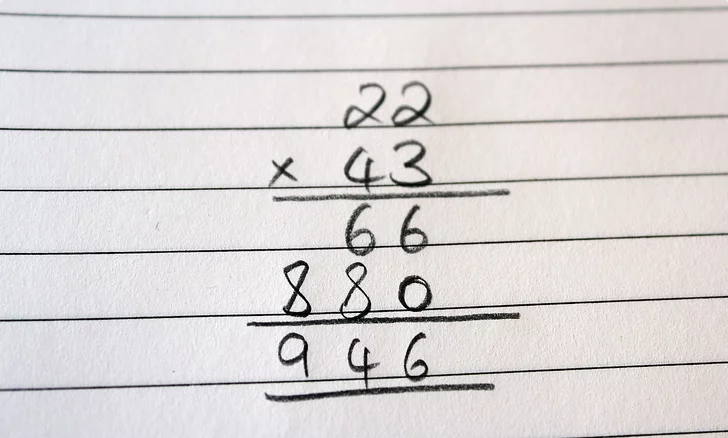 22
× 43
66
880
946